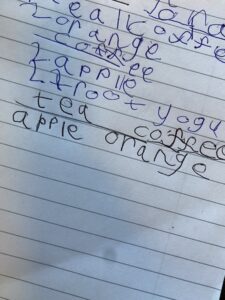 tea/coffe
orange
coffee
apple
froot yogu
tea coffee
apple orange